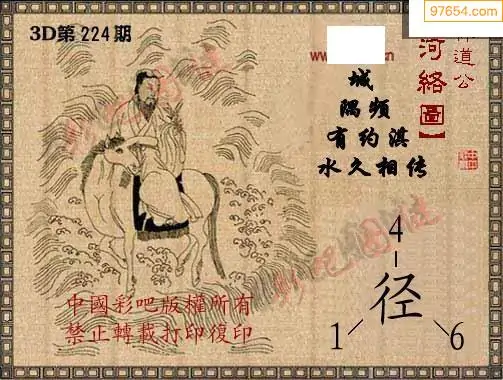 97654.com
3D第224期
www
道公
河络圖】
城
隅频
有约淇
水久相传
4
径
1
6
中國彩吧版權所有
禁止轉載打印復印